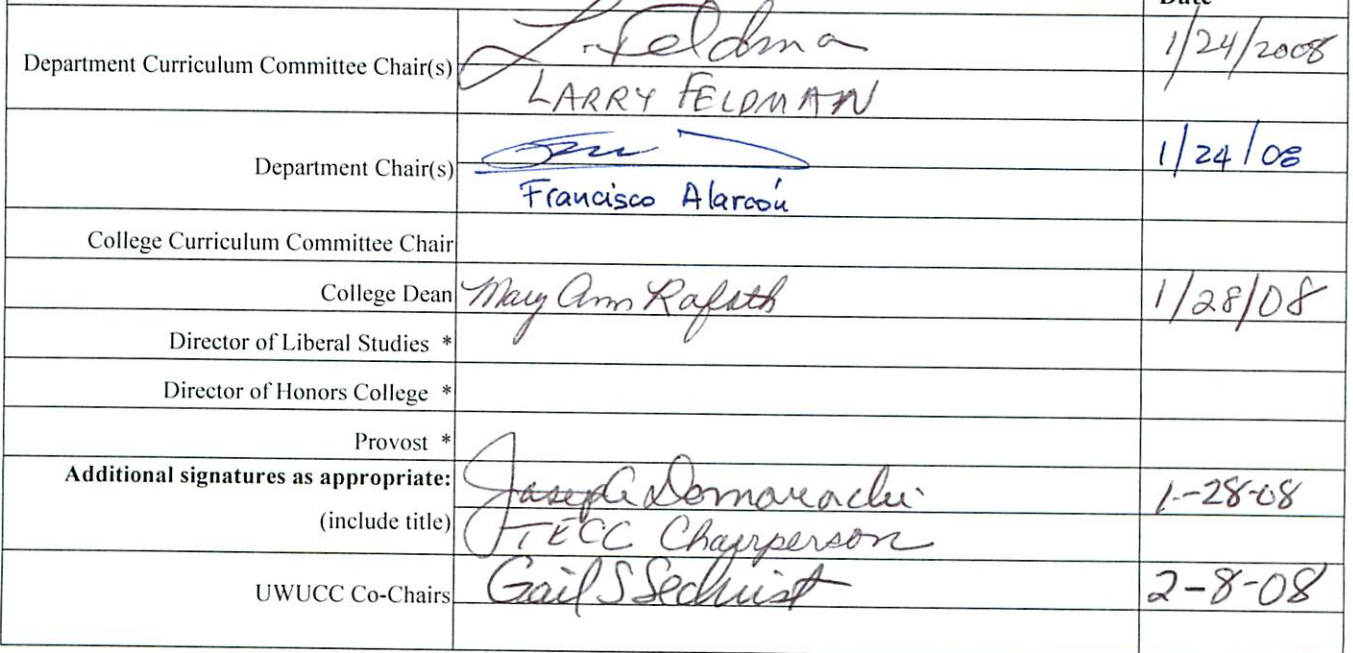 Date
Department Curriculum Committee Chair(s) L. Feldma 1/24/2008
LARRY FELDMAN
Department Chair(s) 1/24/08
Francisco Alarcón
College Curriculum Committee Chair
College Dean Mary Ann Rafoth 1/28/08
Director of Liberal Studies *
Director of Honors College *
Provost *
Additional signatures as appropriate: Joseph Domaracki 1-28-08
(include title) TECC Chairperson
UWUCC Co-Chairs Gail S Sechrist 2-8-08